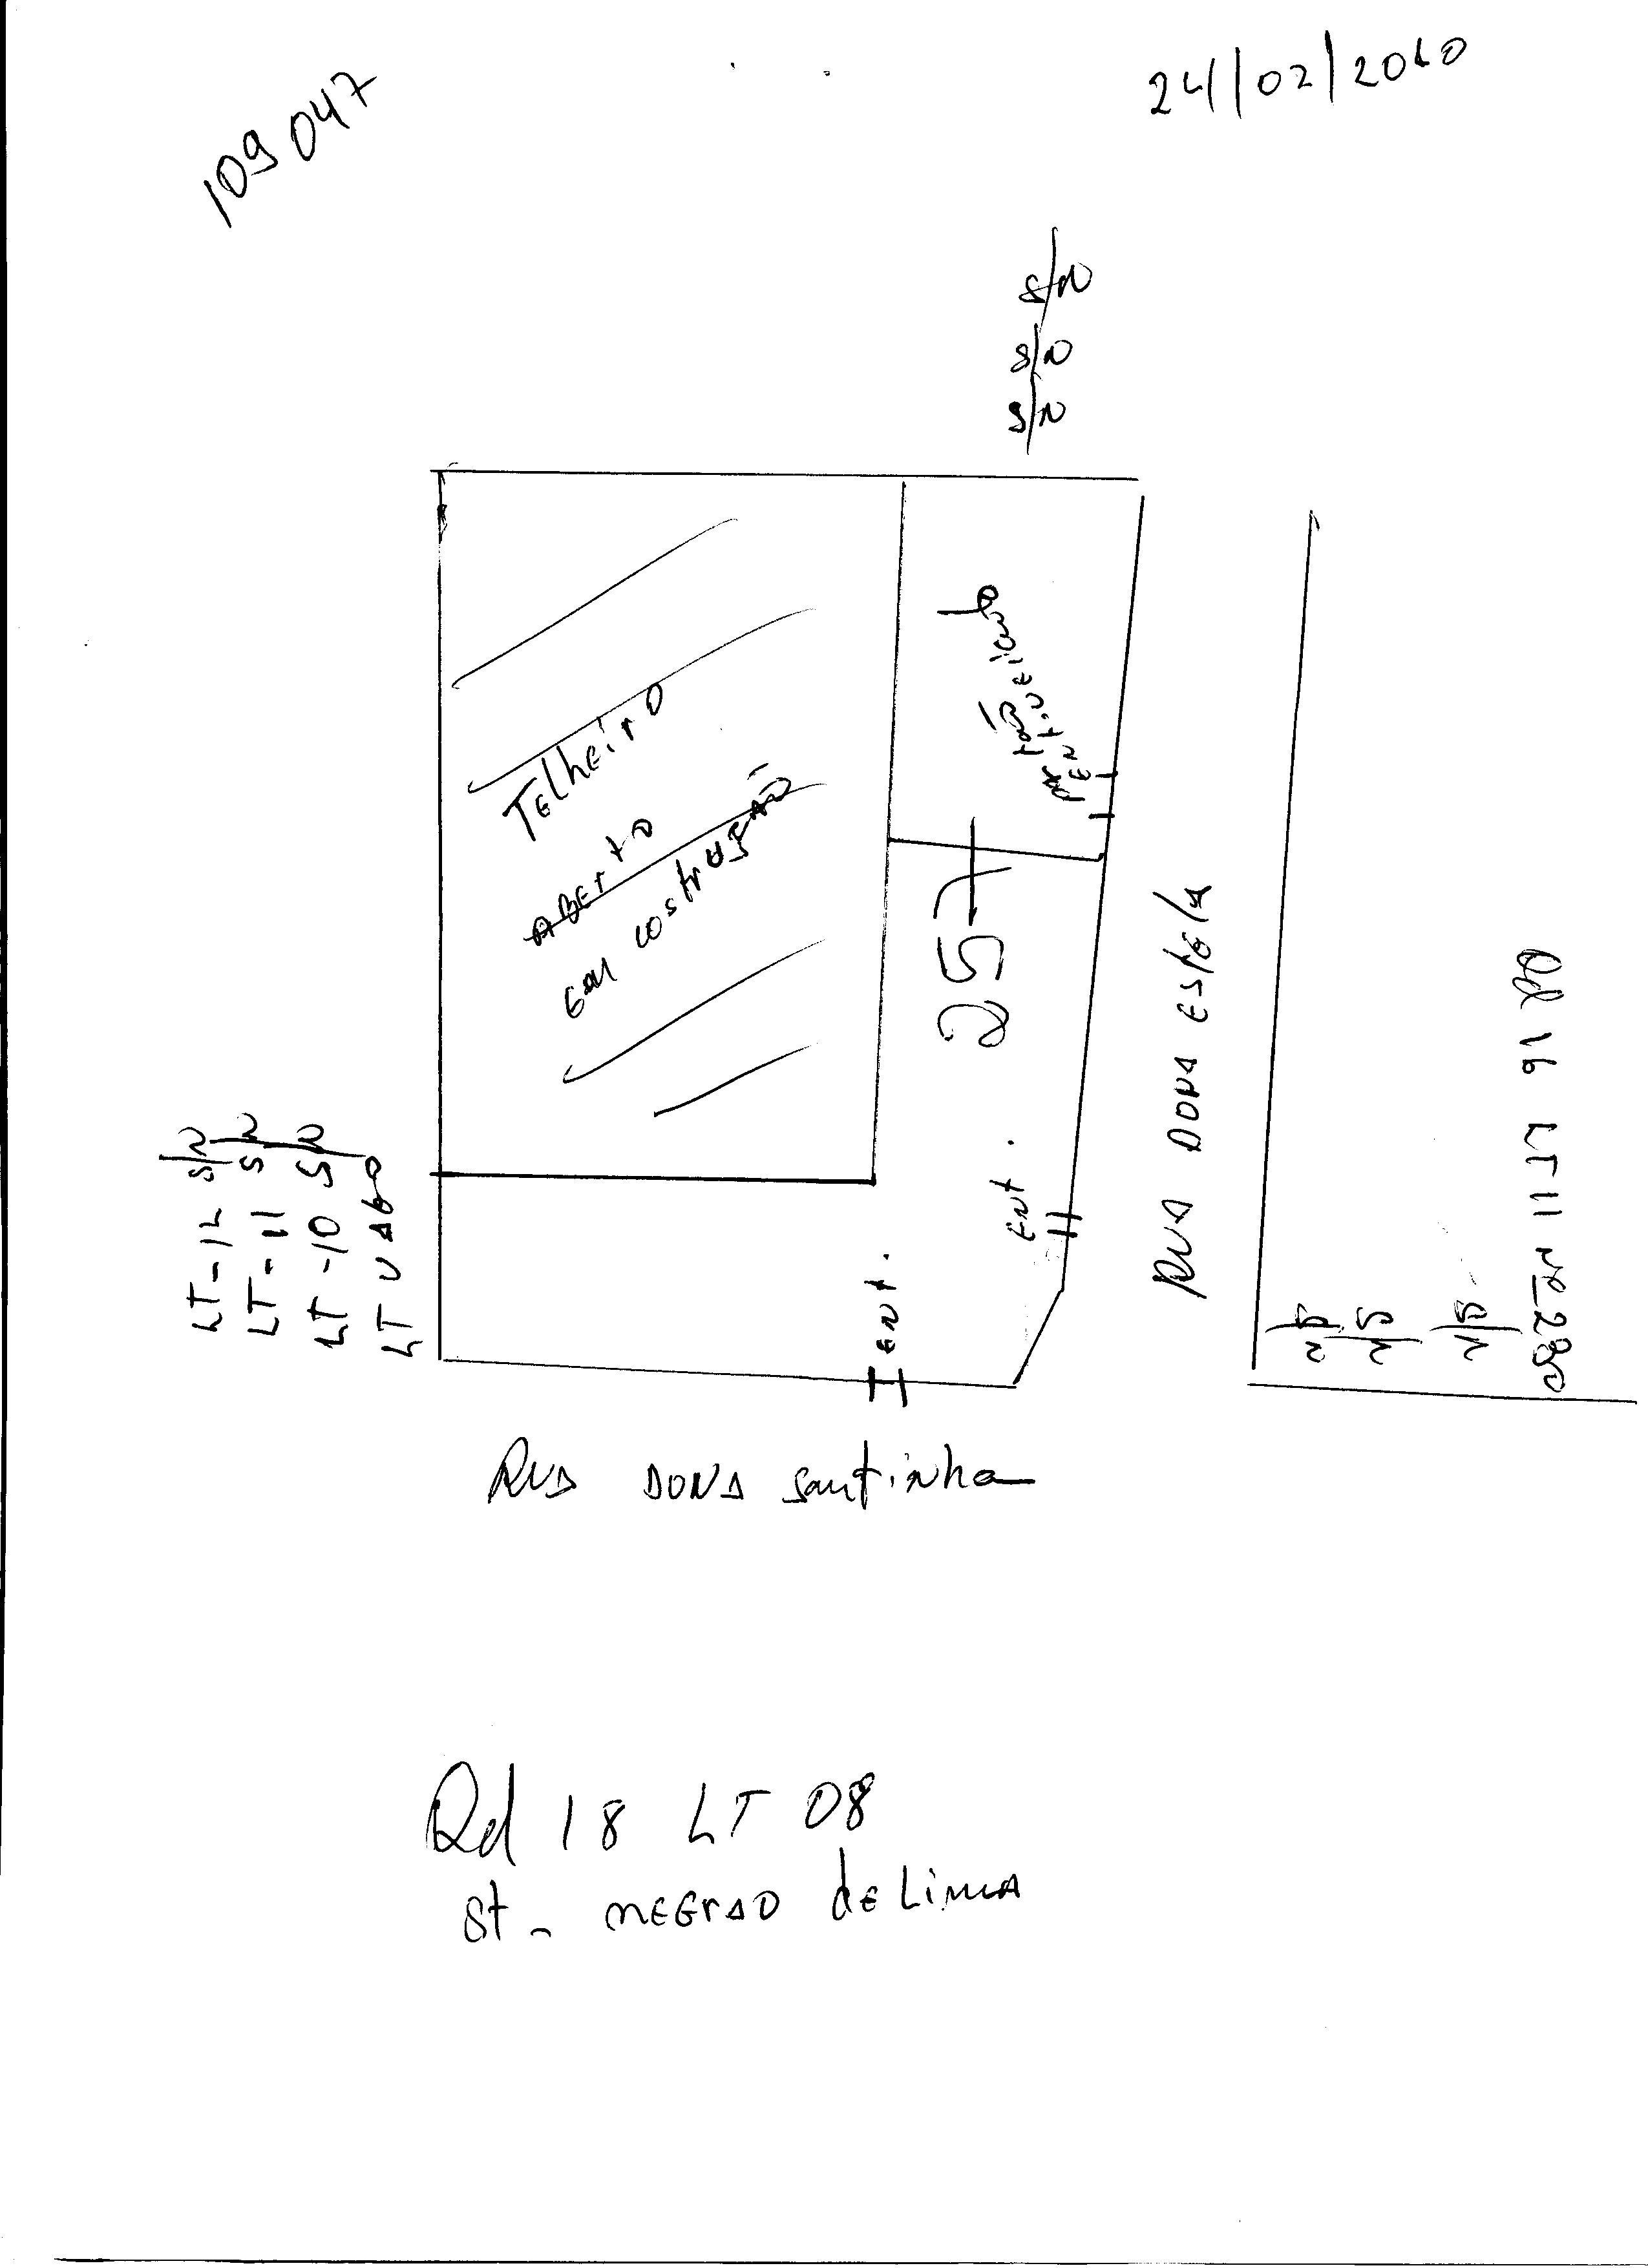 109 047
24/02/2010
S/N
S/N
S/N
Telheiro
ABERTO
EM costrução
portão
ENt. VEiculo
257
RUA DONA EStElA
Qd 16 LT 11 Nº 280
S/N
S/N
S/N
LT-12 S/N
LT-11 S/N
LT-10 S/N
LT VAGO
ENt.
ENt.
RUA DONA Santinha
Qd 18 LT 08
St - NEGrAO dE LiMA